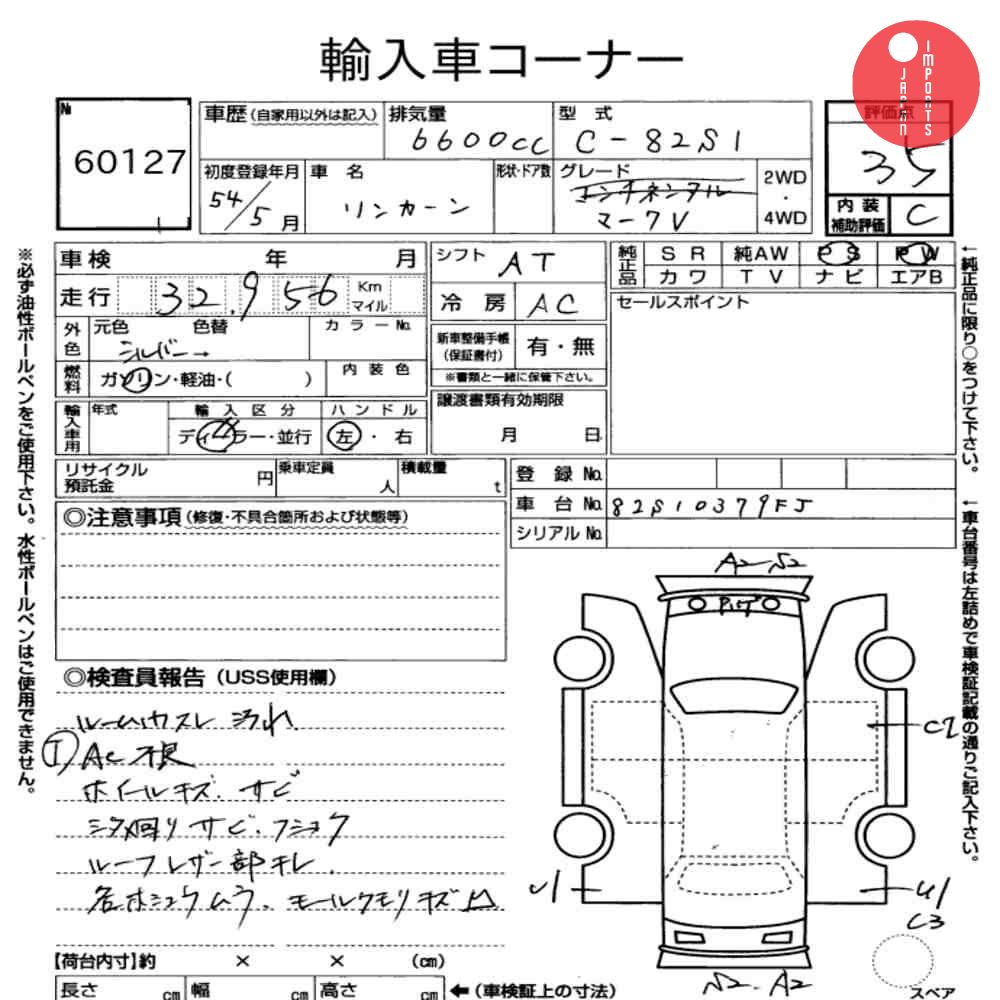 輸入車コーナー
JAPAN IMPORTS
№
60127
車歴 (自家用以外は記入)
排気量
6600cc
型 式
C-82S1
評価点
35
初度登録年月
54/5月
車 名
リンカーン
形状・ドア数
グレード
コンチネンタル
マークV
2WD
・
4WD
内 装
補助評価
C
※必ず油性ボールペンをご使用下さい。水性ボールペンはご使用できません。
車 検 年 月
走 行 32,956 Km マイル
外色
元色 色替
シルバー→
カラー№
燃料
ガソリン・軽油・( )
内 装 色
輸入車用
年式
輸 入 区 分
ディーラー・並行
ハ ン ド ル
左 ・ 右
シフト AT
冷 房 AC
新車整備手帳
(保証書付)
有・無
※書類と一緒に保管下さい。
譲渡書類有効期限
月 日
純正品
S R 純AW P S P W
カ ワ T V ナ ビ エアB
セールスポイント
←純正品に限り○をつけて下さい。
リサイクル
預託金 円
乗車定員 人
積載量 t
登 録 №
車 台 № 82S10379FJ
シリアル №
←車台番号は左詰めで車検証記載の通りご記入下さい。
◎注意事項 (修復・不具合箇所および状態等)
◎検査員報告 (USS使用欄)
ルームカスレ 汚れ
① AC不良
ホイールキズ. サビ
シタ回り サビ. フショク
ルーフレザー部キレ.
各ホシュウムラ. モールクモリキズ凹
A2-S2
C2
U1
U1
C3
S2-A2
スペア
【荷台内寸】約 × × (㎝)
長さ ㎝ 幅 ㎝ 高さ ㎝
←(車検証上の寸法)